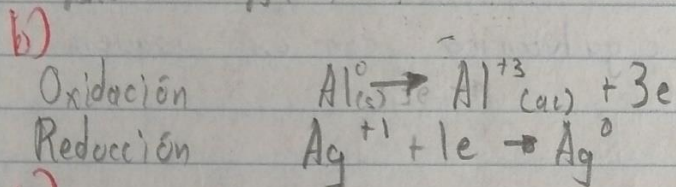 b)
Oxidación Al⁰(s) → Al⁺³(ac) + 3e
Reducción Ag⁺¹ + 1e → Ag⁰